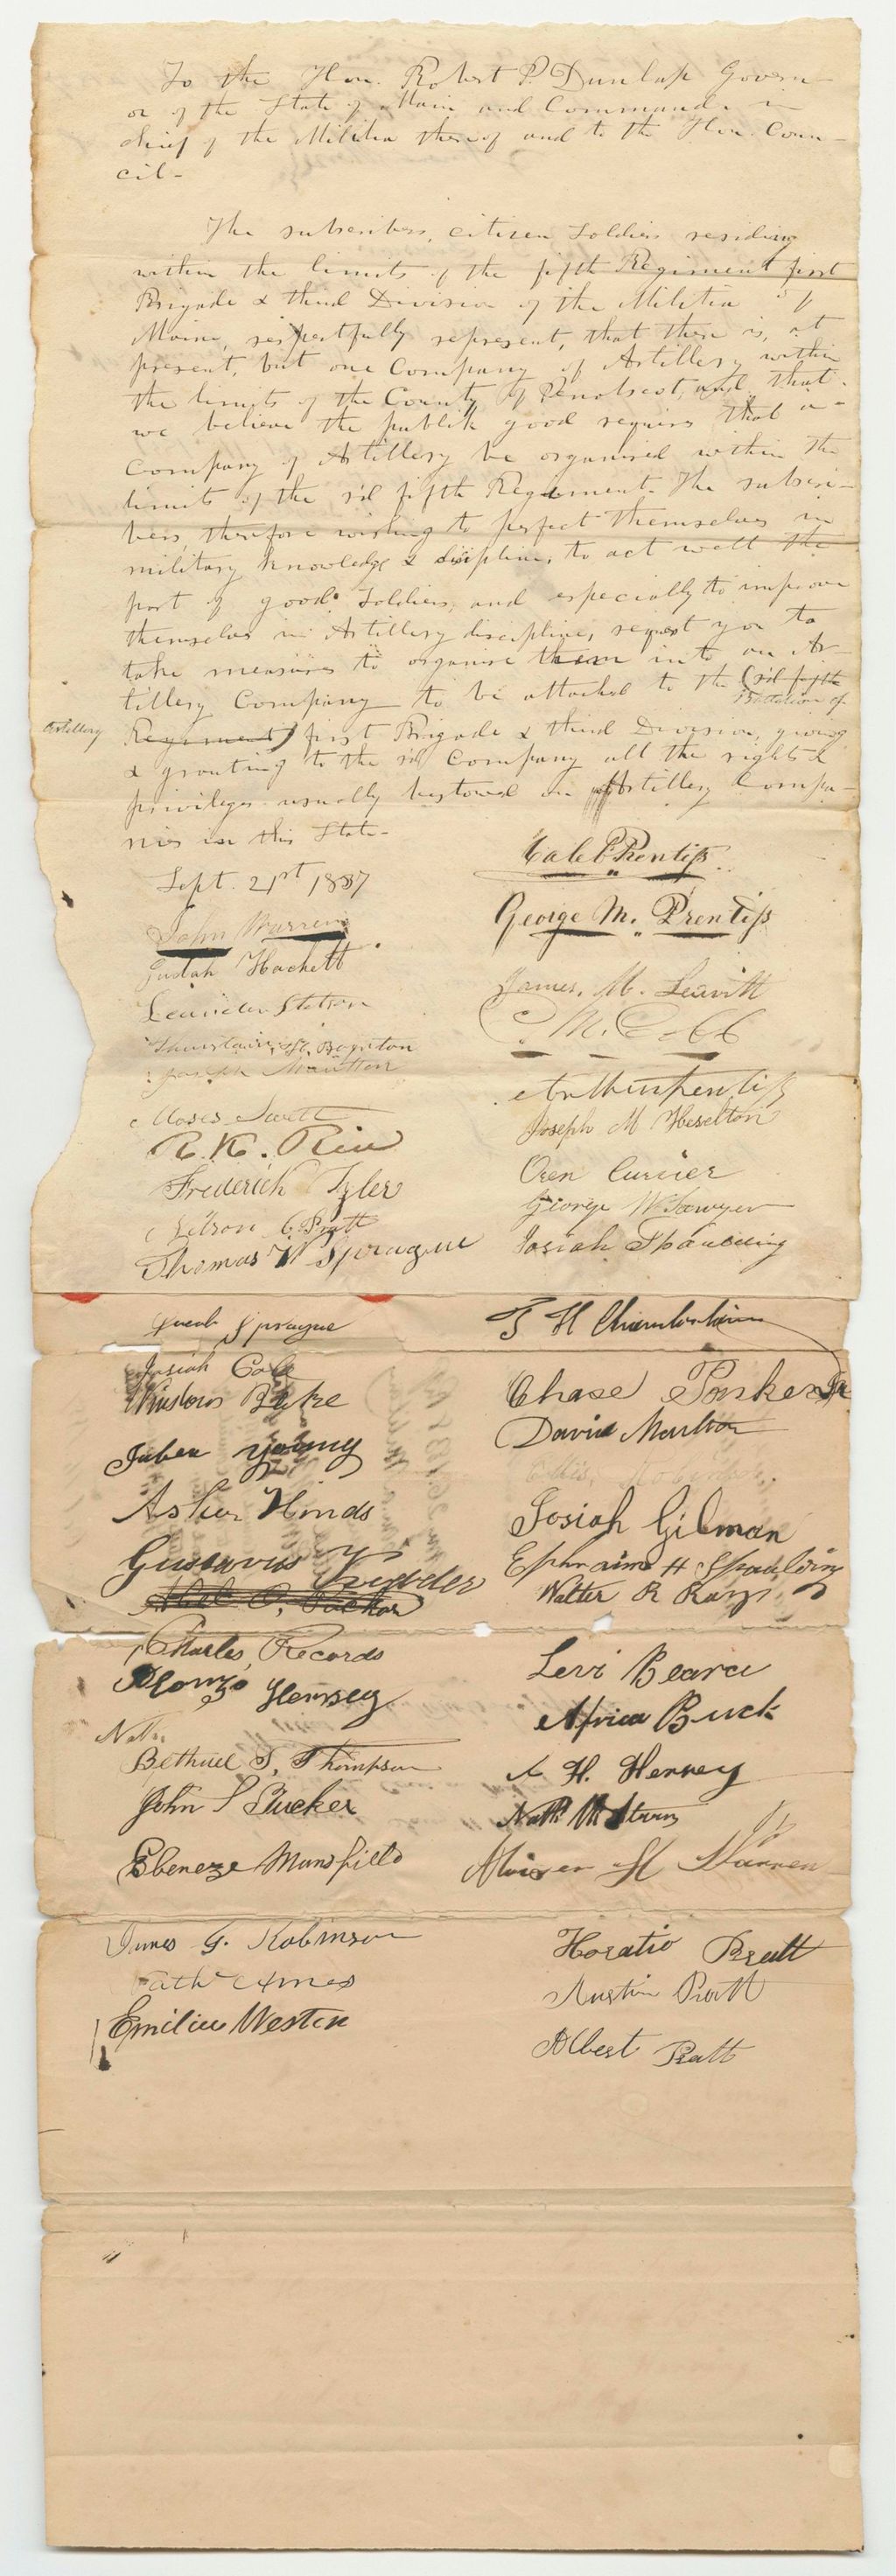 To the Hon. Robert P. Dunlap Govern-
or of the State of Main and Commander in
chief of the Militia thereof and to the Hon. Coun-
cil-
The subscribers, citizen Soldiers residing
within the limits of the fifth Regiment first
Brigade & third Division of the Militia of
Maine, respectfully represent, that there is, at
present, but one Company of Artillery within
the limits of the County of Penobscot, and that
we believe the publik good requires that a
Company of Artillery be organised within the
limits of the s'd fifth Regiment. The subscri-
bers, therefore wishing to perfect themselves in
military knowledge & disipline, to act well the
part of good Soldiers, and especially to improve
themselves in Artillery discipline, request you to
take measures to organise them into an Ar-
tillery Company to be attached to the (s'd fifth
Battalion of
Artillery
Regiment) first Brigade & third Division, giving
& granting to the s'd Company all the rights &
privileges usually bestowed on Artillery Compa-
nies in this State-
Sept. 21st 1837
John Warren
Josiah Hackett
Leander Stetson
Thurstain H. Boynton
Joseph Moulton
Moses Swett
R. K. Rice
Frederick Tyler
Nelson C Pratt
Thomas W Sprague
Jacob Sprague
Josiah Cole
Winslow Bake
Juben Young
Asher Hinds
Gustavus
Tucker
Charles Records
Alonzo Hersey
Nath
Bethuel S. Thompson
John S Tucker
Ebeneze Mansfield
James G. Robinson
Nath Ames
Emilius Westen
Caleb Prentiss
George M. Prentiss
James. M. Leavitt
C. M. Cobb
Arthur Prentiss
Joseph M Heselton
Oren Currier
George W Sawyer
Josiah Spaulding
T H Chamberlain
Chase Parker Jr
David Moulton
Ellis Robinson
Josiah Gilman
Ephraim H Spaulding
Walter R Ray
Levi Bearce
Africa Buck
A H. Hersey
Nath M Stevens
H Warren
Horatio Pratt
Austin Pratt
Albert Pratt